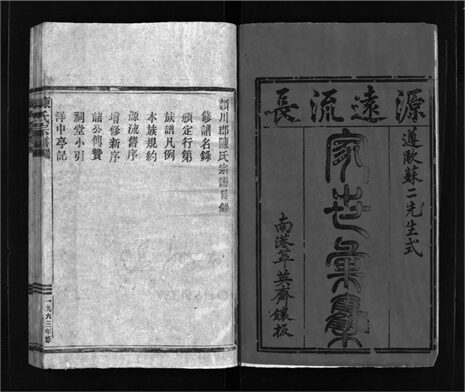 源遠流長
遵歐蘇二先生式
家世彙集
南港萃英齋鐫板
潁川郡陳氏宗譜目錄
修譜名錄
頒定行第
族譜凡例
本族規約
源流舊序
增修新序
諸公傳贊
祠堂小引
洋中亭記
陳氏宗譜
一九六三年修